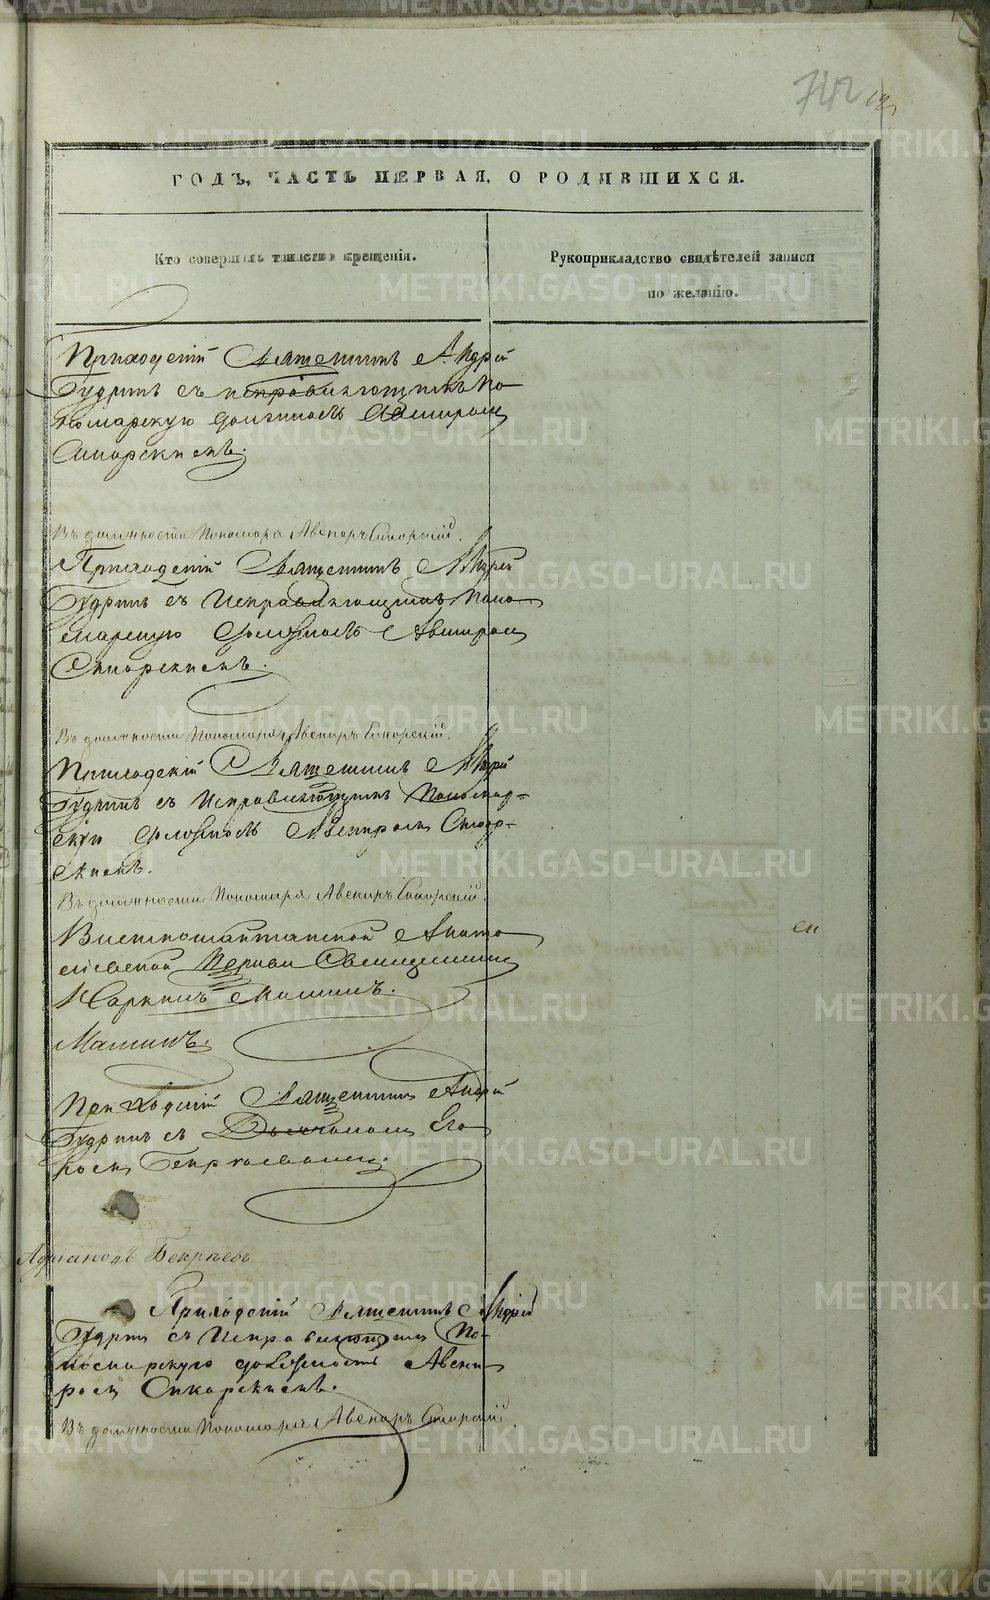 742
ГОДЪ, ЧАСТЬ ПЕРВАЯ, О РОДИВШИХСЯ.
Кто совершалъ таинство крещенія.
Рукоприкладство свидѣтелей записи
по желанію.
Приходскій Священникъ Андрей
Будринъ съ исправляющимъ по-
номарскую должность Авениромъ
Сикорскимъ.
Въ должности Пономаря Авениръ Сикорскій.
Приходскій Священникъ Андрей
Будринъ съ Исправляющимъ Поно
марскую должность Авениромъ
Сикорскимъ.
Въ должности Пономаря Авениръ Сикорскій.
Приходскій Священникъ Андрей
Будринъ съ Исправляющимъ Пономар-
скую должность Авениромъ Сикор-
скимъ.
Въ должности Пономаря Авениръ Сикорскій.
Церкви Священникъ
Маминъ.
Маминъ.
Приходскій Священникъ Андрей
Будринъ съ Его
ромъ
Бекрѣевъ
Приходскій Священникъ Андрей
Будринъ съ Исправляющимъ По-
номарскую должность Авени
ромъ Сикорскимъ.
Въ должности Пономаря Авениръ Сикорскій.
METRIKI.GASO-URAL.RU